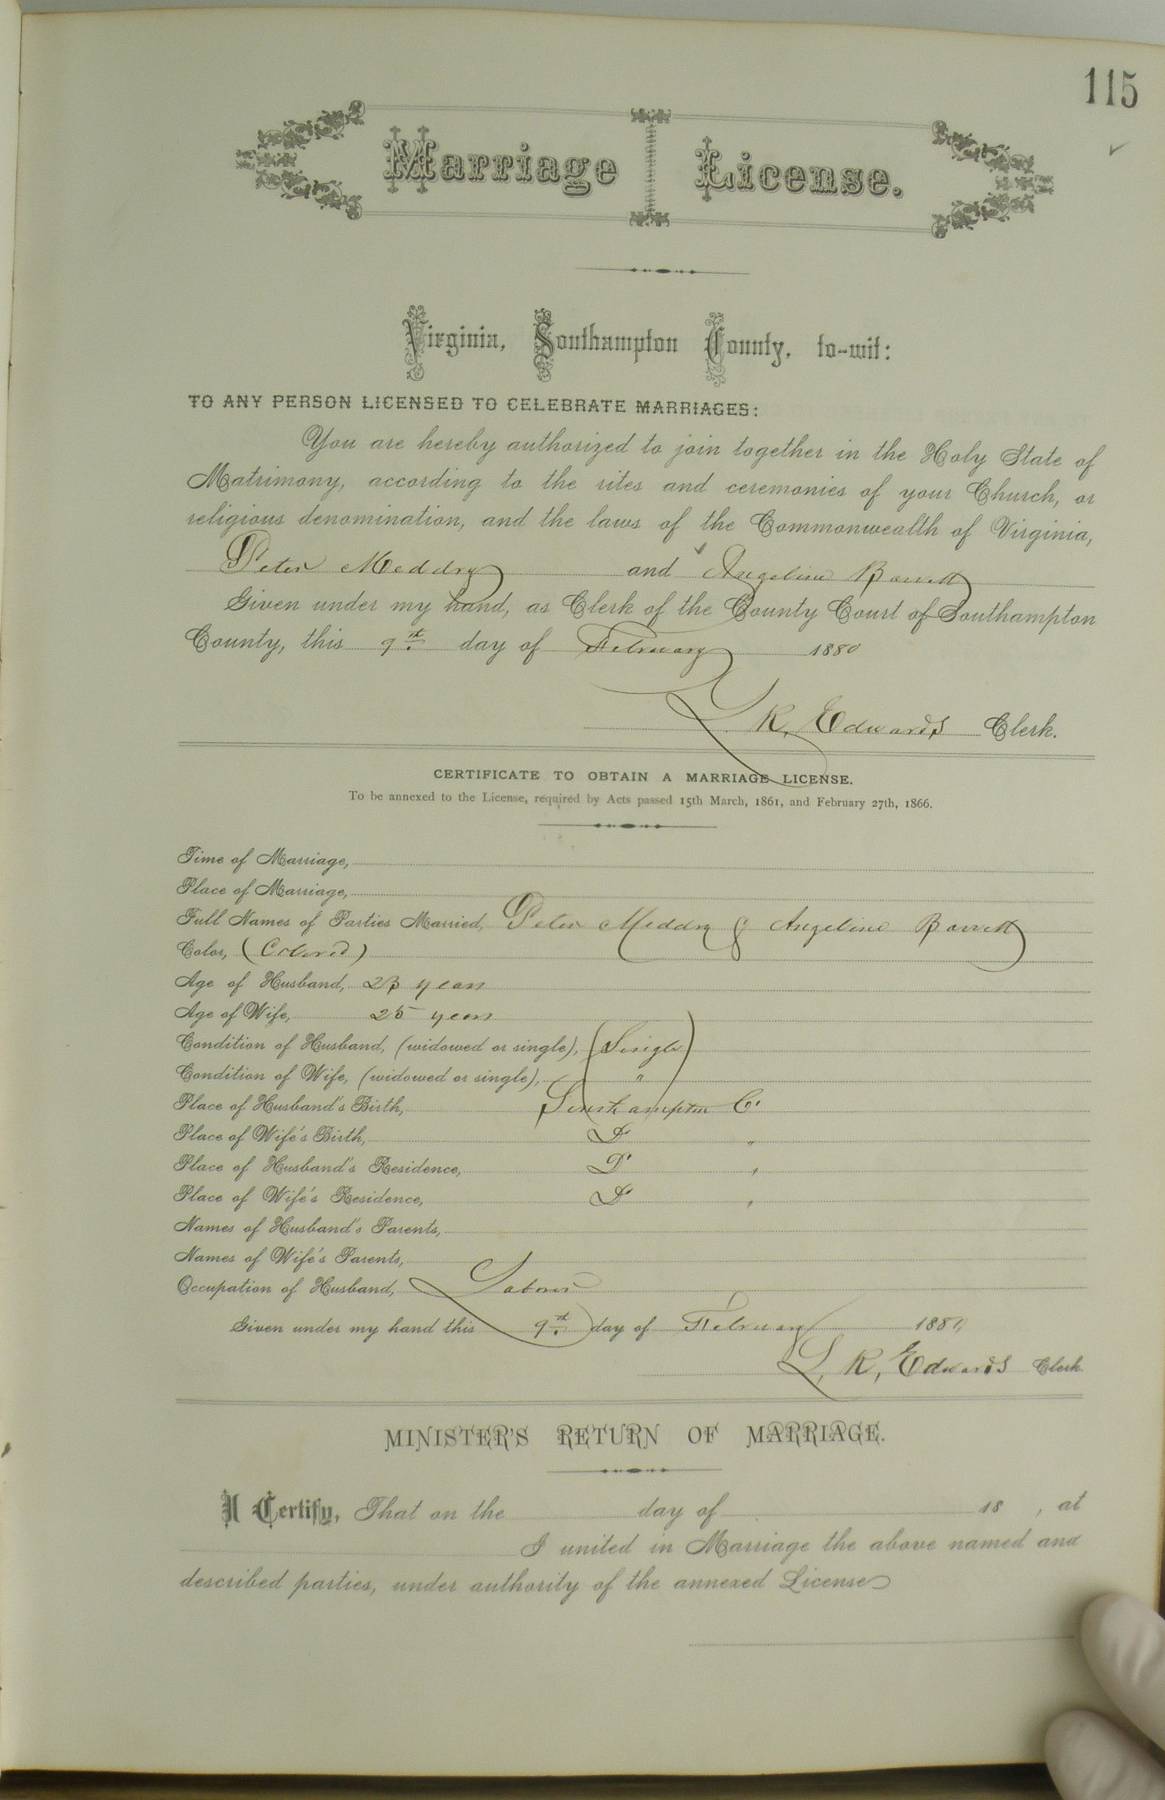 115
Marriage License.
Virginia, Southampton County, to-wit:
TO ANY PERSON LICENSED TO CELEBRATE MARRIAGES:
You are hereby authorized to join together in the Holy State of
Matrimony, according to the rites and ceremonies of your Church, or
religious denomination, and the laws of the Commonwealth of Virginia,
Peter Meddry and Angeline Barrett
Given under my hand, as Clerk of the County Court of Southampton
County, this 9th day of February 1880
L. R. Edwards Clerk.
CERTIFICATE TO OBTAIN A MARRIAGE LICENSE.
To be annexed to the License, required by Acts passed 15th March, 1861, and February 27th, 1866.
Time of Marriage,
Place of Marriage,
Full Names of Parties Married, Peter Meddry & Angeline Barrett
Color, (Colored)
Age of Husband, 23 years
Age of Wife, 25 years
Condition of Husband, (widowed or single), (Single)
Condition of Wife, (widowed or single), "
Place of Husband's Birth, Southampton Co
Place of Wife's Birth, Do "
Place of Husband's Residence, Do "
Place of Wife's Residence, Do "
Names of Husband's Parents,
Names of Wife's Parents,
Occupation of Husband, Laborer
Given under my hand this 9th day of February 1880
L. R. Edwards Clerk
MINISTER'S RETURN OF MARRIAGE.
I Certify, That on the day of 18 , at
I united in Marriage the above named and
described parties, under authority of the annexed License